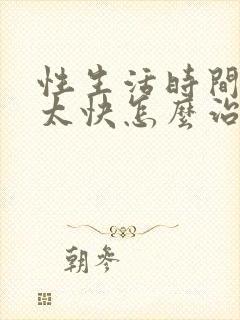 性生活時間
太快怎麼治
朝參